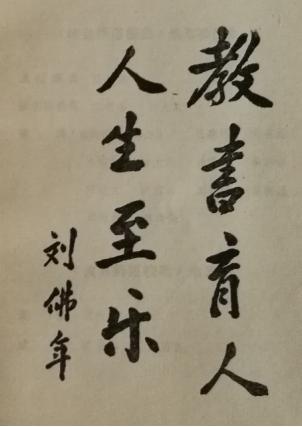 教书育人
人生至乐
刘佛年